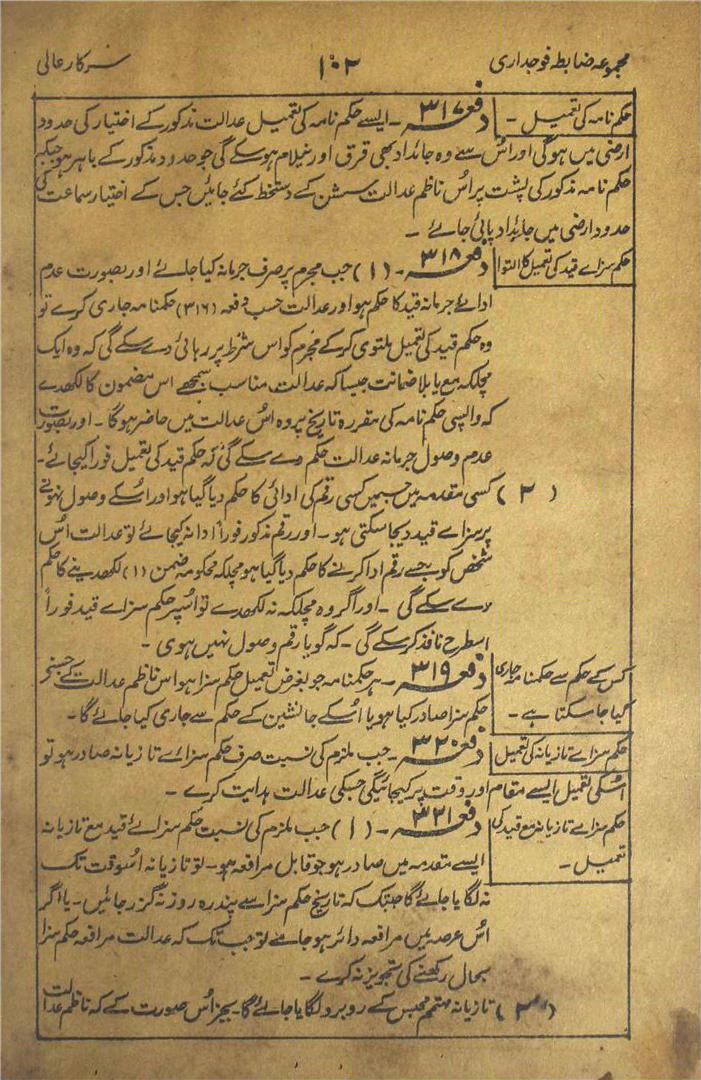 مجموعہ ضابطہ فوجداری ۱۰۲ سرکار عالی
حکم نامہ کی تعمیل ۔ دفعہ ۳۱۷ ۔ ایسے حکم نامہ کی تعمیل عدالت مذکور کے اختیار کی حدود
ارضی میں ہوگی اور اُس سے وہ جائداد بھی قرق اور نیلام ہو سکے گی جو حدود مذکور کے باہر ہو جبکہ
حکم نامہ مذکور کی پشت پر اُس ناظم عدالت سشن کے دستخط کئے جائیں جس کے اختیار سماعت کی
حدود ارضی میں جائداد پائی جائے ۔
حکم سزاے قید کی تعمیل کا التوا دفعہ ۳۱۸ ۔ (۱) جب مجرم پر صرف جرمانہ کیا جائے اور بصورت عدم
ادائے جرمانہ قید کا حکم ہو اور عدالت حسب دفعہ (۳۱۶) حکمنامہ جاری کرے تو
وہ حکم قید کی تعمیل ملتوی کرکے مجرم کو اس شرط پر رہائی دے سکے گی کہ وہ ایک
مچلکہ مع یا بلا ضمانت جیسا کہ عدالت مناسب سمجھے اس مضمون کا لکھدے
کہ واپسی حکم نامہ کی مقررہ تاریخ پر وہ اُس عدالت میں حاضر ہوگا ۔ اور بصورت
عدم وصول جرمانہ عدالت حکم دے سکے گی کہ حکم قید کی تعمیل فوراً کیجائے ۔
(۲) کسی مقدمہ میں جسمیں کسی رقم کی ادائی کا حکم دیا گیا ہو اور اُسکے وصول نہونے
پر سزاے قید دیجا سکتی ہو ۔ اور رقم مذکور فوراً ادا نہ کیجائے تو عدالت اُس
شخص کو جسے رقم ادا کرنے کا حکم دیا گیا ہو مچلکہ محکومہ ضمن (۱) لکھدینے کا حکم
دے سکے گی ۔ اور اگر وہ مچلکہ نہ لکھدے تو اُسپر حکم سزاے قید فوراً
اسطرح نافذ کر سکے گی ۔ کہ گویا رقم وصول نہیں ہوی ۔
کس کے حکم سے حکمنامہ جاری دفعہ ۳۱۹ ۔ ہر حکمنامہ جو بغرض تعمیل حکم سزا ہو اس ناظم عدالت کے جسنے
کیا جا سکتا ہے ۔ حکم سزا صادر کیا ہو یا اُسکے جانشین کے حکم سے جاری کیا جائے گا ۔
حکم سزاے تازیانہ کی تعمیل دفعہ ۳۲۰ ۔ جب ملزم کی نسبت صرف حکم سزاے تازیانہ صادر ہو تو
اُسکی تعمیل ایسے مقام اور وقت پر کیجائیگی جسکی عدالت ہدایت کرے ۔
حکم سزاے تازیانہ مع قید کی دفعہ ۳۲۱ ۔ (۱) جب ملزم کی نسبت حکم سزاے قید مع تازیانہ
تعمیل ۔ ایسے مقدمہ میں صادر ہو جو قابل مرافعہ ہو ۔ تو تازیانہ اُسوقت تک
نہ لگایا جائے گا جبتک کہ تاریخ حکم سزا سے پندرہ روز نہ گزر جائیں ۔ یا اگر
اُس عرصہ میں مرافعہ دائر ہو جائے تو جب تک کہ عدالت مرافعہ حکم سزا
بحال رکھنے کی تجویز نہ کرے ۔
(۲) تازیانہ مہتمم محبس کے روبرو لگایا جائے گا ۔ بجز اُس صورت کے کہ ناظم عدالت